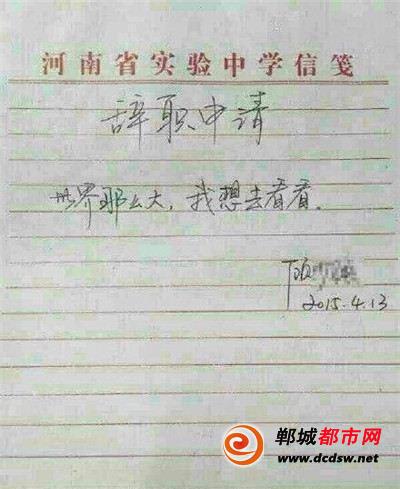 河南省实验中学信笺
辞职申请
世界那么大,我想去看看。
顾
2015.4.13
郸城都市网
www.dcdsw.net